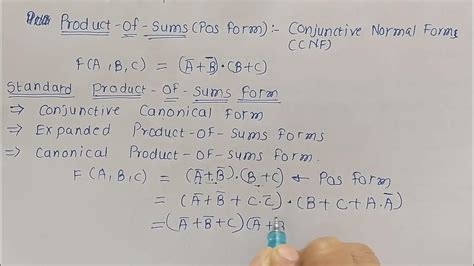 Product-Of-Sums (Pos form):- Conjunctive Normal Forms
(CNF)
F(A,B,C) = (A̅+B̅)·(B+C)
Standard Product-Of-Sums Form
⇒ Conjunctive Canonical Form
⇒ Expanded Product-Of-Sums Forms
⇒ Canonical Product-Of-Sums Form.
F(A,B,C) = (A̅+B̅)·(B+C) ← Pos form
= (A̅+B̅+C·C̅)·(B+C+A·A̅)
=(A̅+B̅+C)(A̅+B